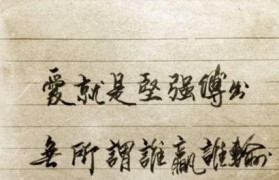 愛就是堅强縛出
無所謂誰贏誰輸